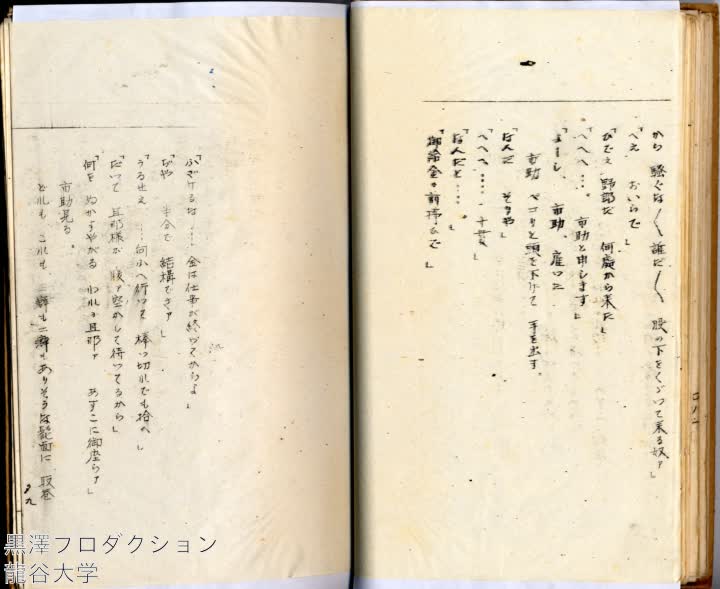 から 騒ぐな〱 誰だ〱 股の下をくゞつて来る奴ァ」
「へえ おいらで」
「ひでえ野郎だ 何處から来た」
「へへへ…。市助と申します」
「よーし、市助、雇つた
市助 ペコリと頭を下げて 手を出す。
「なんだ そりや」
「へへへ…… 十貫文」
「なんだと……。」
「御給金の前拂ひで」
「ふざけるな…… 金は仕事が終つてからよ」
「ぢや 半分で 結構でさァ」
「うるせえ …何處へ行つて 棒つ切れでも拾へ」
「だつて 旦那様が 腹ァ空かして待つてるから」
「何を ぬかしやがる れの旦那ァ あすこに御座らァ」
市助見る。
どれも これも 一癖も二癖もありそうな髭面に 取巻
黒澤プロダクション
龍谷大学